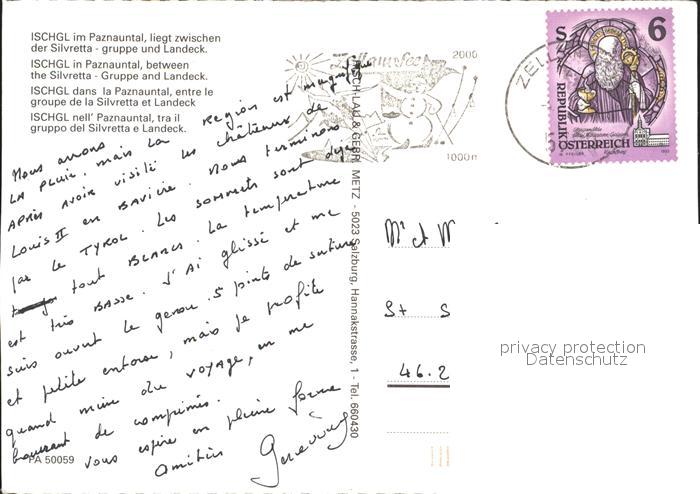 ISCHGL im Paznauntal, liegt zwischen
der Silvretta - gruppe und Landeck.
ISCHGL in Paznauntal, between
the Silvretta - Gruppe and Landeck.
ISCHGL dans la Paznauntal, entre le
groupe de la Silvretta et Landeck
ISCHGL nell' Paznauntal, tra il
gruppo del Silvretta e Landeck.
Nous avons
la pluie. mais la région est magnifique
Après avoir visité les châteaux de
Louis II en Bavière. Nous terminons
par le TYROL. Les sommets sont déjà
tout BLANCS. La température
est très BASSE. J'Ai glissé et me
suis ouvert le genou. 5 points de suture
et petite entorse, mais je profite
quand même du voyage, en me
bourrant de comprimés.
Vous espère en pleine forme
Amitiés
PA 50059
GEBR. METZ - 5023 Salzburg, Hannakstrasse, 1 - Tel. 660430
2000
1000m
ZELL
S 6
REPUBLIK
ÖSTERREICH
Mr et M
St S
46.2
privacy protection
Datenschutz